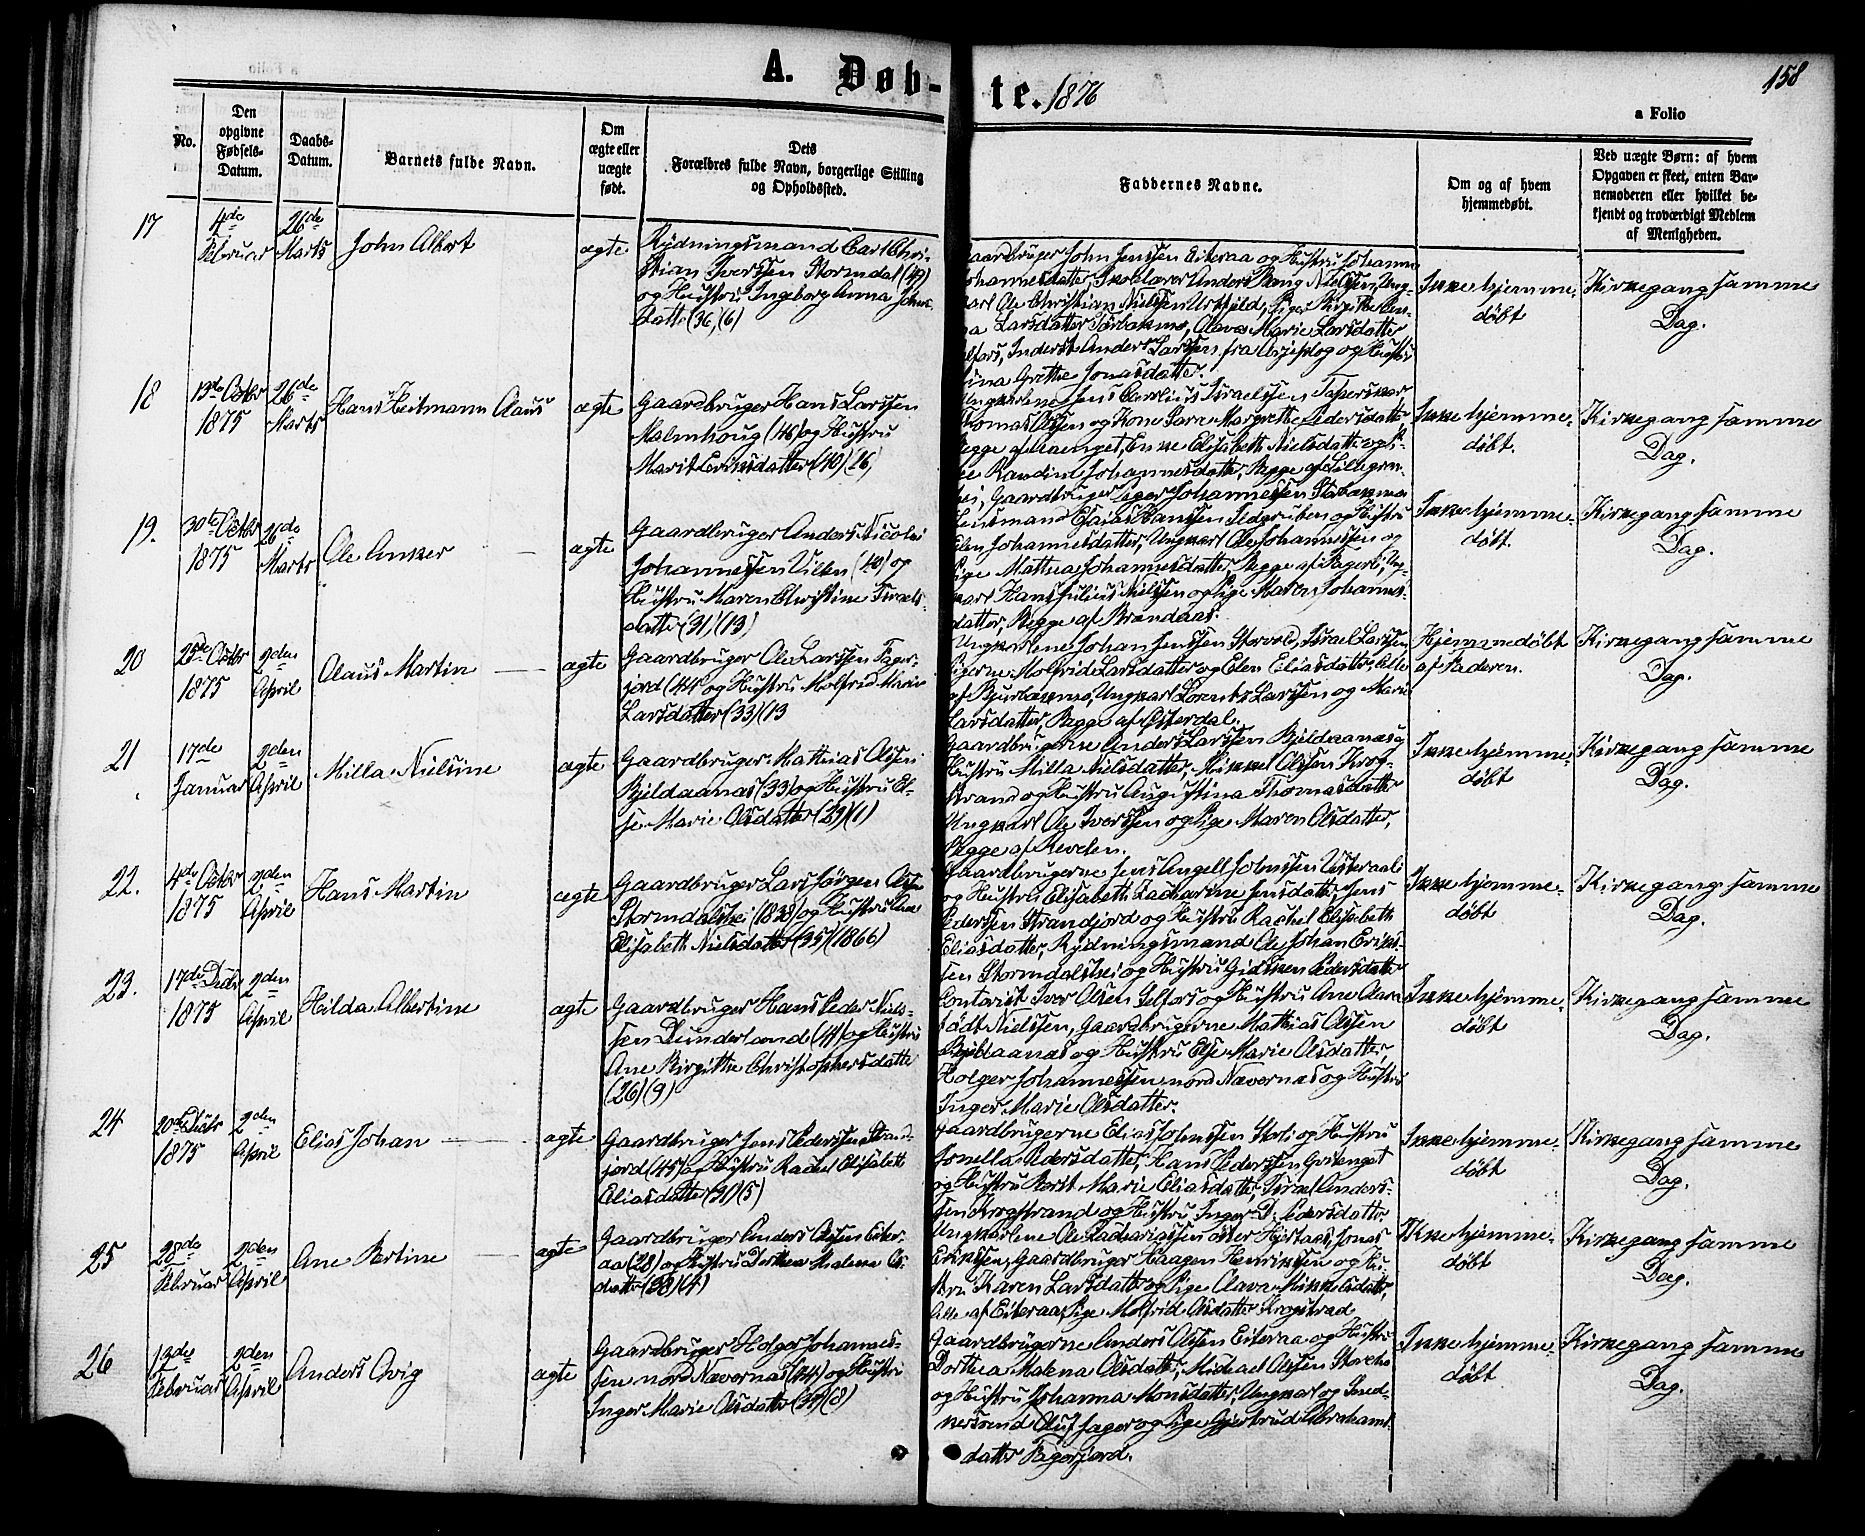 A. Døb-
te. 1876
158
a Folio
No.
Den opgivne Fødsels-Datum.
Daabs-Datum.
Barnets fulde Navn.
Om ægte eller uægte født.
Dets Forældres fulde Navn, borgerlige Stilling og Opholdssted.
Faddernes Navne.
Om og af hvem hjemmedøbt.
Ved uægte Børn: af hvem Opgaven er skeet, enten Barnemoderen eller hvilket bekjendt og troværdigt Medlem af Menigheden.
17
4de Februar
26de Marts
John Albert
ægte
Rydningsmand Carl Chri-
stian Iverssen Stormdal (49)
og Hustru Ingeborg Anna Johns-
datter (36) (6)
Gaardbruger John Jenssen Eiteraa og Hustru Johanna
Johannesdatter, Skolelærer Anders Nielssen, Ung-
karl Ole Christian Nielssen
Larsdatter, Olava Marie Larsdatter
Selfors, Inderst Anders Larssen fra Arjeplog og Hustru
Stina Grethe Jonasdatter.
Ikke hjemme-
døbt
Kirkegang samme
Dag.
18
13de Octbr
1875
26de Marts
Hans Heitmann Claus
ægte
Gaardbruger Hans Larssen
Malmhoug (46) og Hustru
Marit Larsdatter (40) (26)
Ungkarlene Jens Carolius Israelssen
Thomas Olssen og Kone Sara Margrethe Pedersdatter
Begge af Enke Elisabeth Nielsdatter og
Randine Johannesdatter, Begge af
Gaardbruger Johannessen
Ikke hjemme-
døbt.
Kirkegang samme
Dag.
19.
30te Octbr
1875
26de Marts
Ole Anker
ægte
Gaardbruger Anders Nicolai
Johannessen (40) og
Hustru Maren Christine Israels-
datter (31) (13)
Lensmand Esaias Hanssen og Hustru
Elen Johannesdatter, Ungkarl Ole Johannessen og
Pige Mathea Johannesdatter, Begge af Ung-
karl Hans Julius Nielssen og Pige Maren Johannes-
datter, Begge af Brandaas.
Ikke hjemme-
døbt.
Kirkegang samme
Dag.
20
25de Octbr
1875
2den April
Olaus Martin
ægte
Gaardbruger Ole Larssen Fager-
jord (44) og Hustru Molfrid Marie
Larsdatter (33) (13
Ungkarlene Johan Jenssen Storvold, Israel Larssen
Pigerne Molfrid Larsdatter og Elen Eliasdatter Alle
af Bjurbækmo, Ungkarl Lorents Larssen og Marie
Larsdatter, Begge af Østerdal.
Hjemmedøbt
af Faderen.
Kirkegang samme
Dag.
21
17de Januar
2den April
Milla Nielsine
ægte
Gaardbruger Mathias Olssen
Bjeldaanæs (33) og Hustru El-
se Marie Olsdatter (29) (1)
Gaardbrugerne Anders Larssen Bjeldaanæs og
Hustru Milla Nielsdatter, Mikkel Olssen Krog-
strand og Hustru Augustina Thomasdatter
Ungkarl Ole Iverssen og Pige Maren Olsdatter,
Begge af Revelen.
Ikke hjemme-
døbt
Kirkegang samme
Dag.
22.
4de Octbr
1875
2den April
Hans Martin
ægte
Gaardbruger Lars Jørgen Olsen
Stormdalshei (1838) og Hustru Ane
Elisabeth Nielsdatter (35) (1866)
Gaardbrugerne Jens Angell Johnssen Vesteraali
og Hustru Elisabeth Zacharine Jensdatter, Jens
Pederssen Strandjord og Hustru Rachel Elisabeth
Eliasdatter, Rydningsmand Ole Johan Eriks-
sen Stormdalshei og Hustru Gidsken Pedersdatter
Ikke hjemme-
døbt
Kirkegang samme
Dag.
23.
17de Decbr
1875
2den April
Hilda Albertine
ægte
Gaardbruger Hans Peder Niels-
sen Dunderland (41) og Hustru
Ane Birgitte Christophersdatter
(26) (9)
Contorist Iver Olssen Selfors og Hustru Ane Clara
født Nielssen, Gaardbrugerne Mathias Olssen
Bjeldaanæs og Hustru Else Marie Olsdatter,
Holger Johannessen nord Nævernæs og Hustru
Inger Marie Olsdatter.
Ikke hjemme-
døbt
Kirkegang samme
Dag.
24
20de Decbr
1875
2den April
Elias Johan
ægte
Gaardbruger Jens Pederssen Strand-
jord (45) og Hustru Rachel Elisabeth
Eliasdatter (31) (5)
Gaardbrugerne Elias Johnssen Storli og Hustru
Jonella Pedersdatter, Hans Pederssen Hvitenget
og Hustru Berit Marie Eliasdatter, Israel Anders-
sen Krogstrand og Hustru Inger D. Pedersdatter
Ikke hjemme-
døbt
Kirkegang samme
Dag.
25
28de Februar
2den April
Ane Bertine
ægte
Gaardbruger Anders Olssen Eiter-
aa (28) og Hustru Dorthea Malena Ols-
datter (38) (4)
Ungkarlene Ole Zachariassen øster Hjertaas, Jonas
Erikssen, Gaardbruger Haagen Henrikssen og Hu-
stru Karen Larsdatter og Pige Olava Mikkelsdatter,
Alle af Eiteraa, Pige Molfrid Olsdatter Krogstrad
Ikke hjemme-
døbt
Kirkegang samme
Dag.
26
13de Februar
2den April
Anders Ovig
ægte
Gaardbruger Holger Johannes-
sen nord Nævernæs (44) og Hustru
Inger Marie Olsdatter (34) (8)
Gaardbrugerne Anders Olssen Eiteraa og Hustru
Dorthea Malena Olsdatter, Michael Olssen
og Hustru Johanna Monsdatter, Ungkarl og Sned-
kersvend Oluf Jager og Pige Gjertrud Abrahams-
datter Fagerjord.
Ikke hjemme-
døbt
Kirkegang samme
Dag.